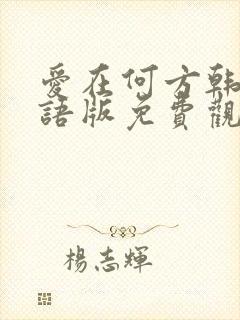 愛在何方韩
語版免費觀
楊志輝